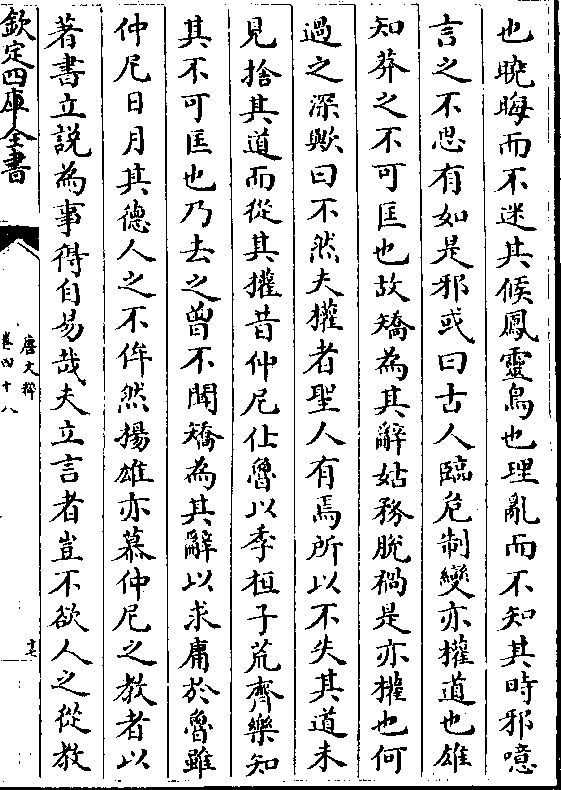 也曉晦而不迷其候鳳靈鳥也理亂而不知其時邪噫
言之不思有如是邪或曰古人臨危制變亦權道也雄
知莽之不可匡也故矯為其辭姑務脫禍是亦權也何
過之深歟曰不然夫權者聖人有焉所以不失其道未
見捨其道而從其權昔仲尼仕魯以季桓子荒齊樂知
其不可匡也乃去之曾不聞矯為其辭以求庸於魯雖
仲尼日月其德人之不侔然揚雄亦慕仲尼之教者以
著書立説為事得自易哉夫立言者豈不欲人之從教
欽定四庫全書
唐文粹
卷四十八